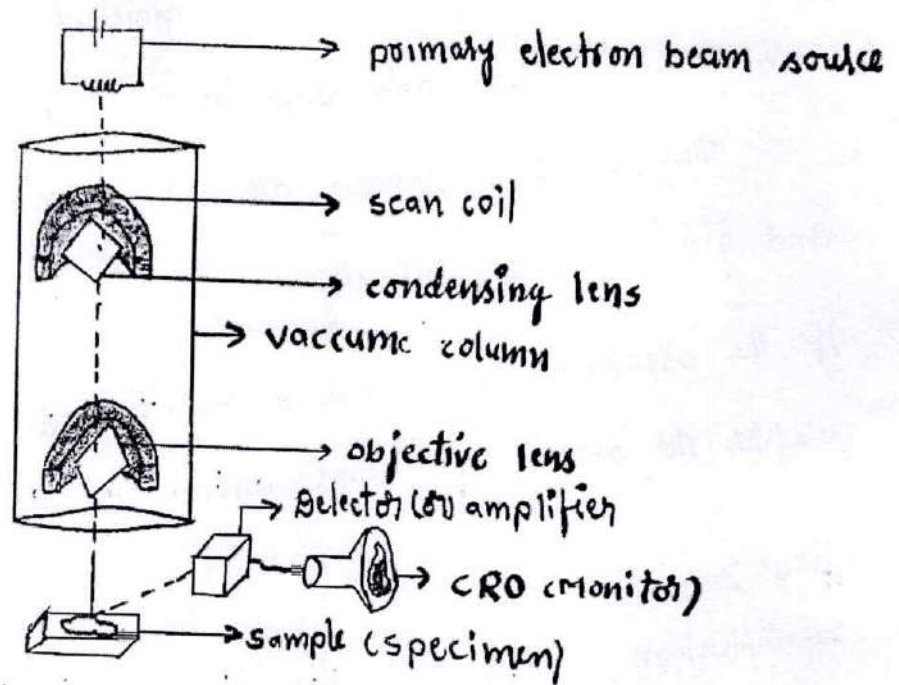 primary electron beam source
scan coil
condensing lens
vaccume column
objective lens
Detector (or) amplifier
CRO (Monitor)
Sample (specimen)